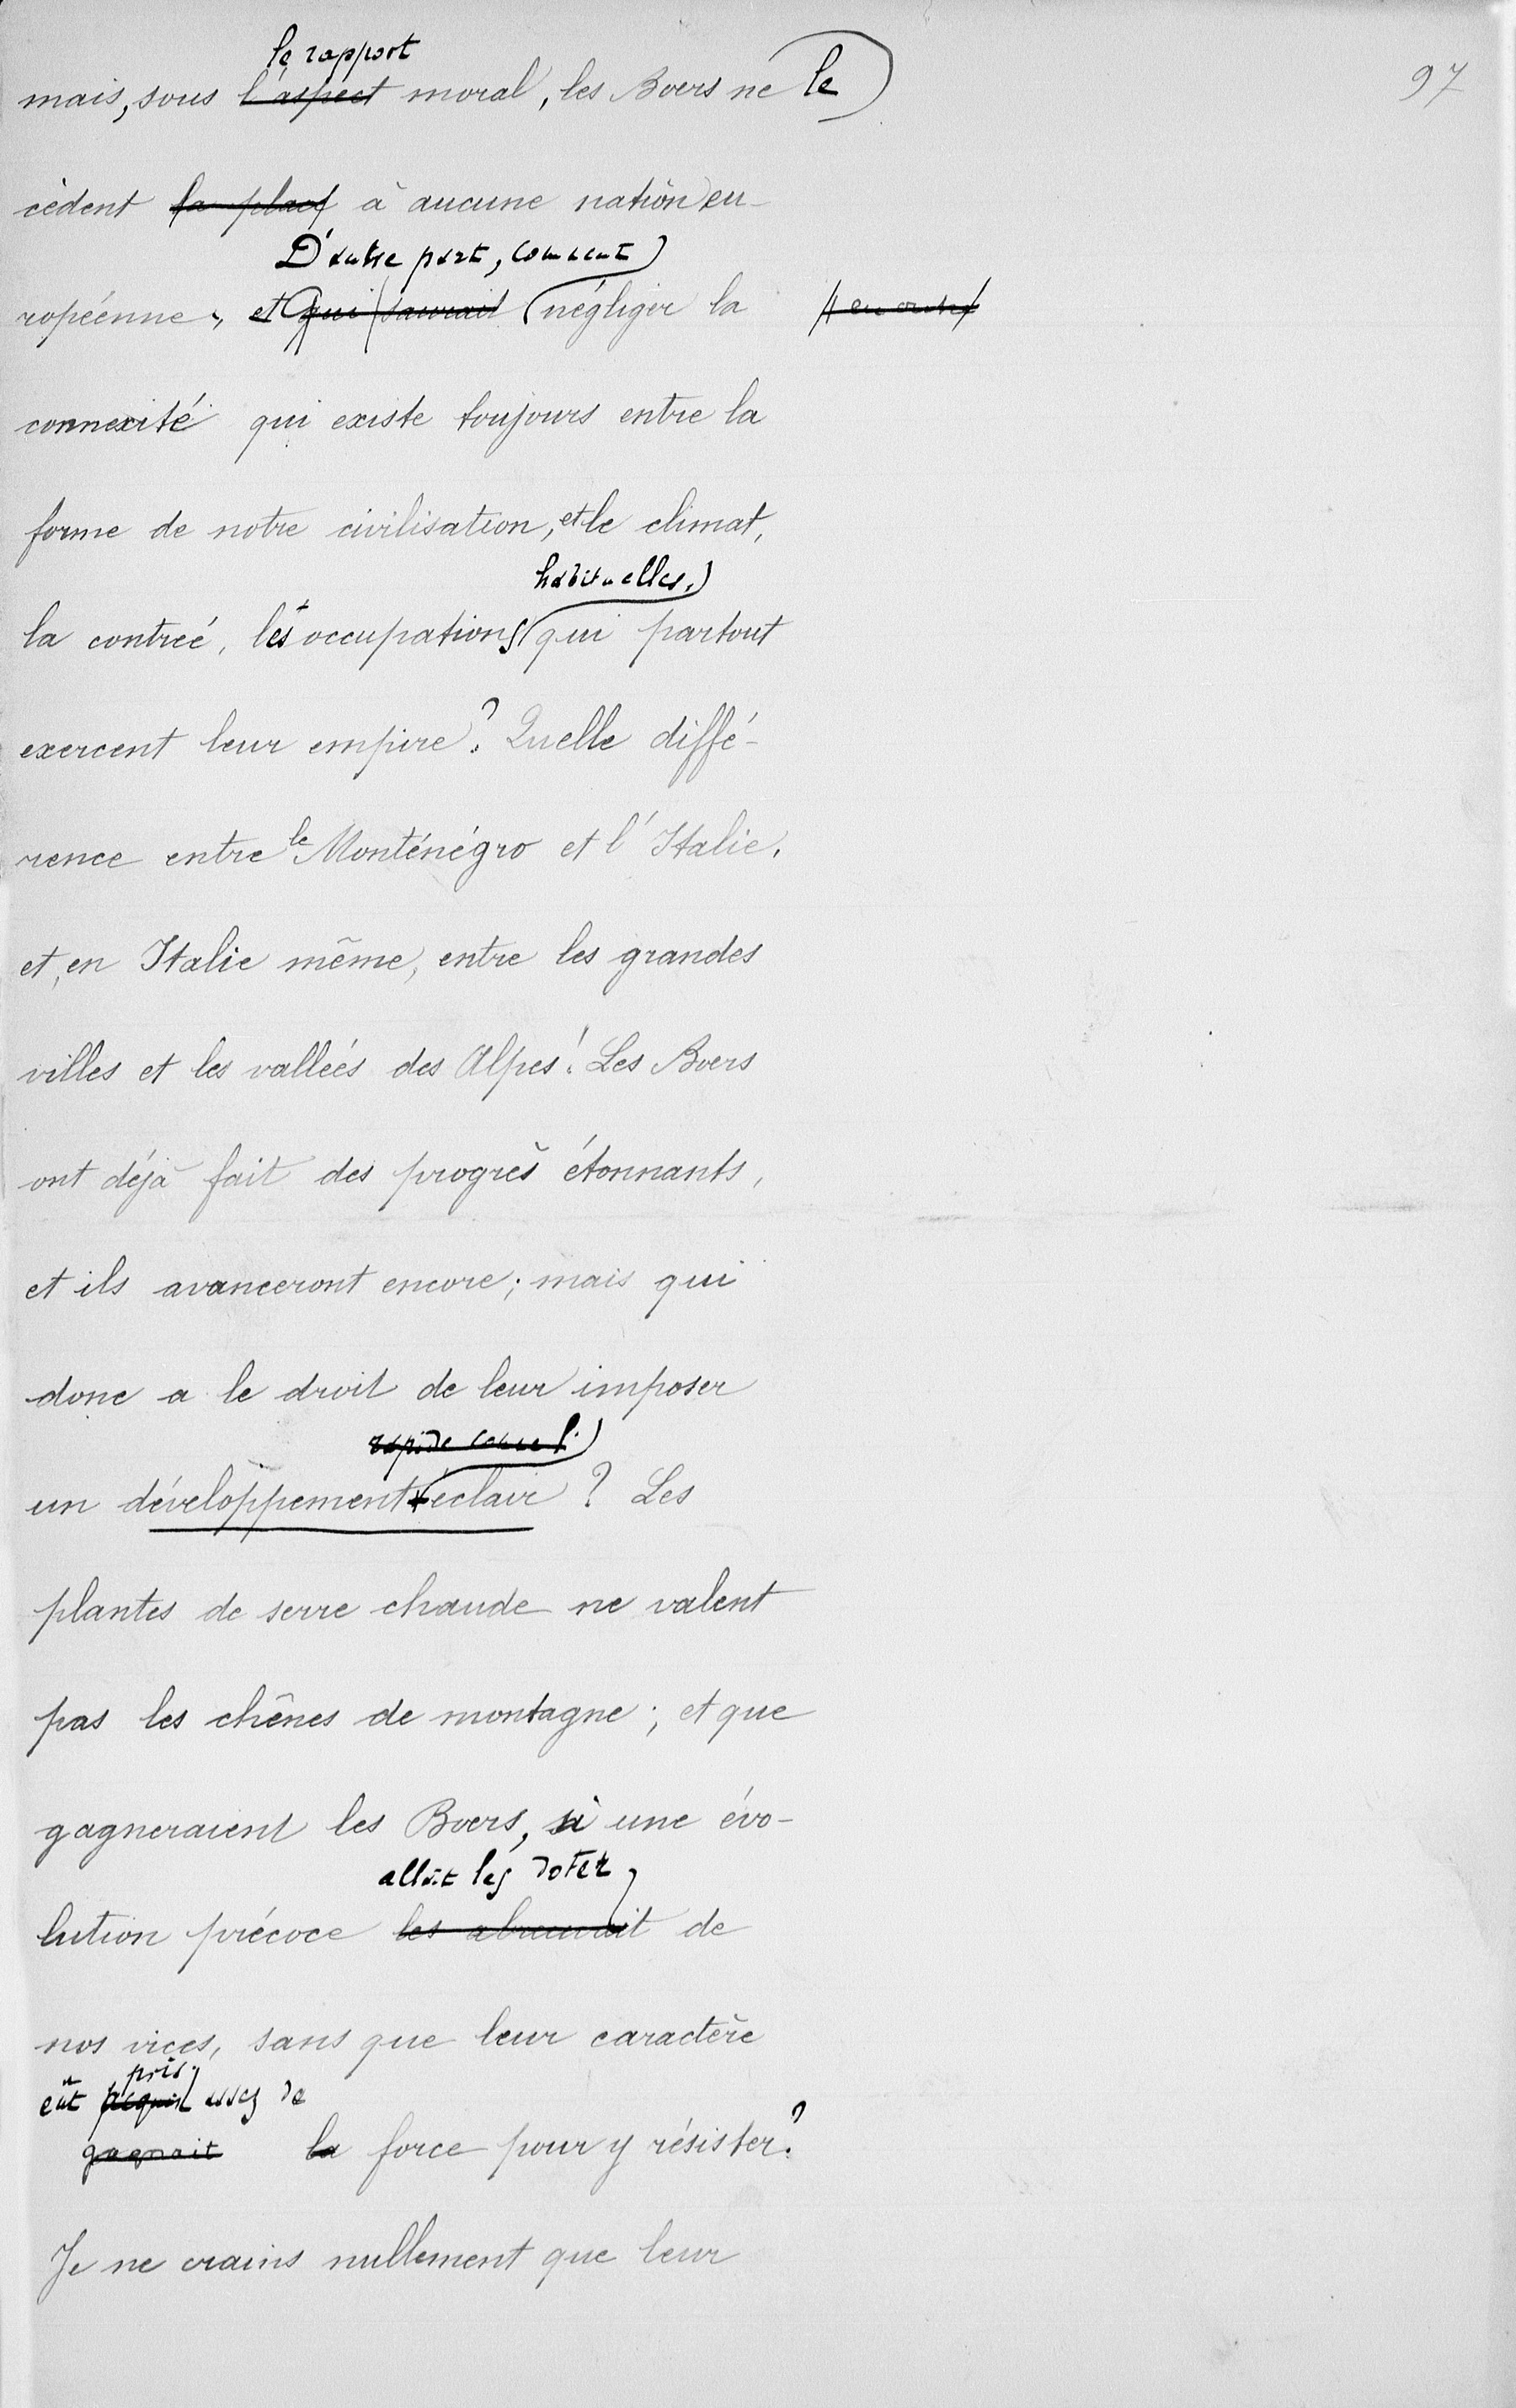 97
le rapport
mais, sous l'aspect moral, les Boers ne le
cèdent la place à aucune nation eu-
D'autre part, comment
ropéenne, et qui saurait négliger la
connexité qui existe toujours entre la
forme de notre civilisation, et le climat,
habituelles,
la contrée, les occupations qui partout
exercent leur empire? Quelle diffé-
rence entre le Monténégro et l'Italie,
et, en Italie même, entre les grandes
villes et les vallées des Alpes! Les Boers
ont déjà fait des progrès étonnants,
et ils avanceront encore; mais qui
donc a le droit de leur imposer
rapide comme l'
un développement éclair? Les
plantes de serre chaude ne valent
pas les chênes de montagne; et que
gagneraient les Boers, si une évo-
allait les doter
lution précoce les de
nos vices, sans que leur caractère
pris
eût acquis assez de
gagnait la force pour y résister?
Je ne crains nullement que leur